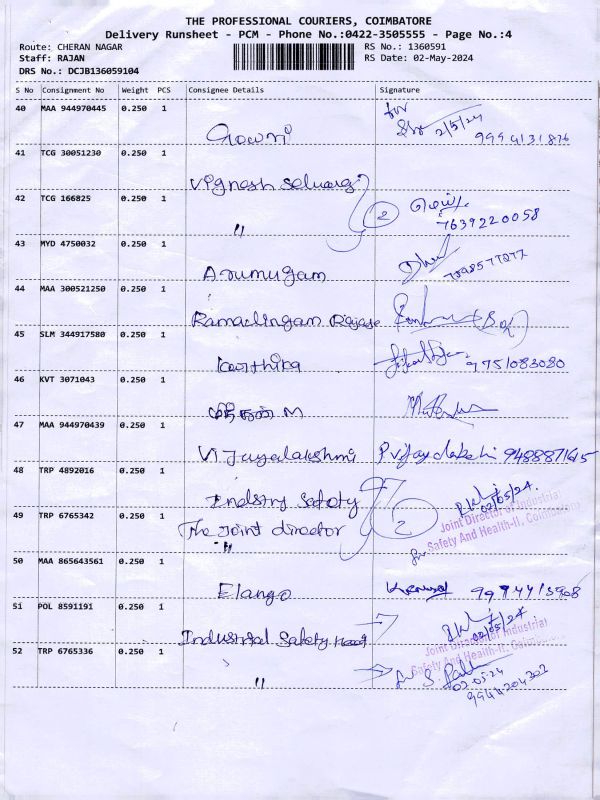 THE PROFESSIONAL COURIERS, COIMBATORE
Delivery Runsheet - PCM - Phone No.:0422-3505555 - Page No.:4
Route: CHERAN NAGAR
RS No.: 1360591
Staff: RAJAN
RS Date: 02-May-2024
DRS No.: DCJB136059104
S No Consignment No Weight PCS Consignee Details Signature
40 MAA 944970445 0.250 1
Gowri 2/5/24
41 TCG 30051230 0.250 1
Vignesh
42 TCG 166825 0.250 1
" 2 7639220058
43 MYD 4750032 0.250 1
Arumugam
44 MAA 300521250 0.250 1
Ramalingam
45 SLM 344917580 0.250 1
Karthika 9751083080
46 KVT 3071043 0.250 1
M
47 MAA 944970439 0.250 1
Vijayalakshmi
48 TRP 4892016 0.250 1
Indstry Safety 02/05/24.
49 TRP 6765342 0.250 1
The Joint director 2 Joint Director of Industrial
" Safety And Health-II, Coimbatore
50 MAA 865643561 0.250 1
Elango
51 POL 8591191 0.250 1
Industrial Safety 02/05/24
Joint Director of Industrial
52 TRP 6765336 0.250 1
Safety And Health-II, Coimbatore
" 02-05-24
9944204302